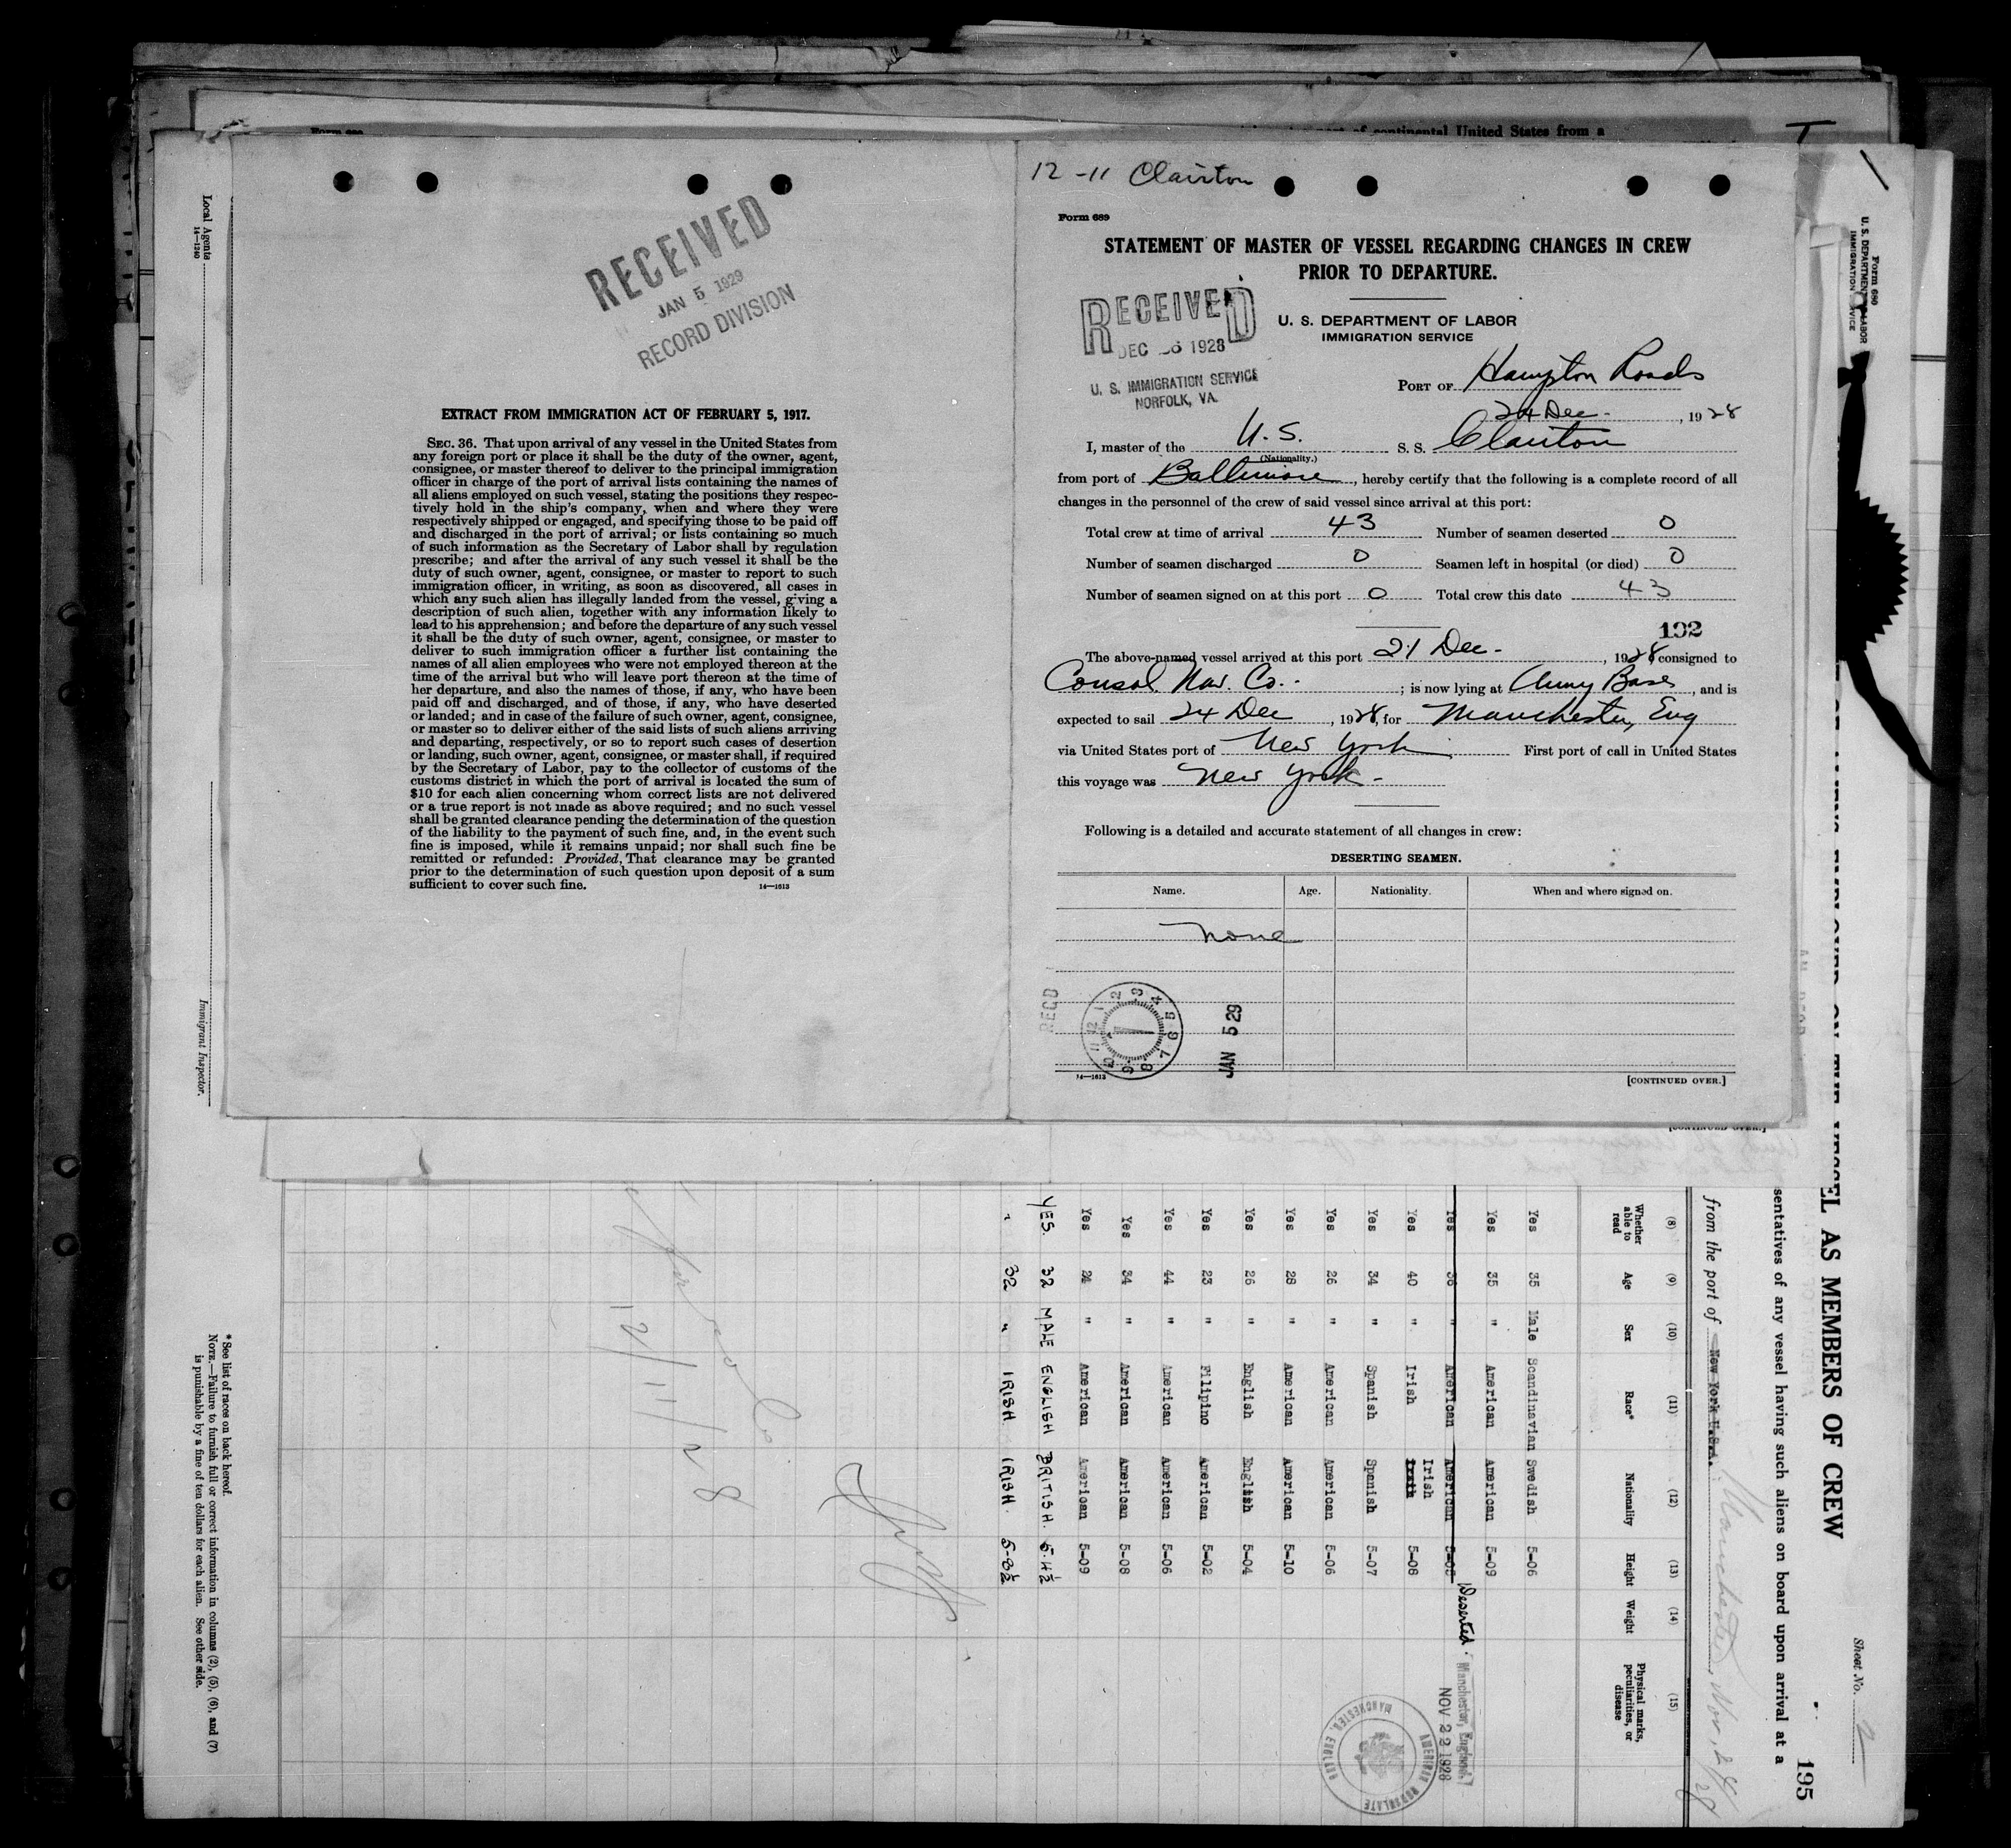 Form 689
of continental United States from a
Local Agents
14—1240
Immigrant Inspector.
RECEIVED
JAN 5 1929
RECORD DIVISION
EXTRACT FROM IMMIGRATION ACT OF FEBRUARY 5, 1917.
SEC. 36. That upon arrival of any vessel in the United States from
any foreign port or place it shall be the duty of the owner, agent,
consignee, or master thereof to deliver to the principal immigration
officer in charge of the port of arrival lists containing the names of
all aliens employed on such vessel, stating the positions they respec-
tively hold in the ship's company, when and where they were
respectively shipped or engaged, and specifying those to be paid off
and discharged in the port of arrival; or lists containing so much
of such information as the Secretary of Labor shall by regulation
prescribe; and after the arrival of any such vessel it shall be the
duty of such owner, agent, consignee, or master to report to such
immigration officer, in writing, as soon as discovered, all cases in
which any such alien has illegally landed from the vessel, giving a
description of such alien, together with any information likely to
lead to his apprehension; and before the departure of any such vessel
it shall be the duty of such owner, agent, consignee, or master to
deliver to such immigration officer a further list containing the
names of all alien employees who were not employed thereon at the
time of the arrival but who will leave port thereon at the time of
her departure, and also the names of those, if any, who have been
paid off and discharged, and of those, if any, who have deserted
or landed; and in case of the failure of such owner, agent, consignee,
or master so to deliver either of the said lists of such aliens arriving
and departing, respectively, or so to report such cases of desertion
or landing, such owner, agent, consignee, or master shall, if required
by the Secretary of Labor, pay to the collector of customs of the
customs district in which the port of arrival is located the sum of
$10 for each alien concerning whom correct lists are not delivered
or a true report is not made as above required; and no such vessel
shall be granted clearance pending the determination of the question
of the liability to the payment of such fine, and, in the event such
fine is imposed, while it remains unpaid; nor shall such fine be
remitted or refunded: Provided, That clearance may be granted
prior to the determination of such question upon deposit of a sum
sufficient to cover such fine.
14—1613
12-11 Clairton
Form 689
STATEMENT OF MASTER OF VESSEL REGARDING CHANGES IN CREW
PRIOR TO DEPARTURE.
RECEIVED
DEC 26 1928
U. S. IMMIGRATION SERVICE
NORFOLK, VA.
U. S. DEPARTMENT OF LABOR
IMMIGRATION SERVICE
PORT OF Hampton Roads
24 Dec - , 1928
I, master of the U.S. S. S. Clairton
(Nationality.)
from port of Baltimore, hereby certify that the following is a complete record of all
changes in the personnel of the crew of said vessel since arrival at this port:
Total crew at time of arrival 43 Number of seamen deserted 0
Number of seamen discharged 0 Seamen left in hospital (or died) 0
Number of seamen signed on at this port 0 Total crew this date 43
192
The above-named vessel arrived at this port 21 Dec - , 1928 consigned to
Consol. Nav. Co. ; is now lying at Army Base, and is
expected to sail 24 Dec, 1928, for Manchester, Eng
via United States port of New York First port of call in United States
this voyage was New York -
Following is a detailed and accurate statement of all changes in crew:
DESERTING SEAMEN.
Name. Age. Nationality. When and where signed on.
None
RECD
12 1 2 3 4 5 6 7 8 9 10 11
JAN 5 29
14—1613
[CONTINUED OVER.]
[CONTINUED OVER.]
Form 680
U. S. DEPARTMENT OF LABOR
IMMIGRATION SERVICE
Sheet No. 2
195
VESSEL AS MEMBERS OF CREW
sentatives of any vessel having such aliens on board upon arrival at a
from the port of New York U.S.A. Manchester, Nov, 28/28
(8) (9) (10) (11) (12) (13) (14) (15)
Whether able to read Age Sex Race* Nationality Height Weight Physical marks, peculiarities, or disease
Yes 35 Male Scandinavian Swedish 5-06
Yes 35 " American American 5-09
Yes 36 " American American 5-08 Deserted.
Yes 40 " Irish Irish 5-08
Yes 34 " Spanish Spanish 5-07
Yes 26 " American American 5-06
Yes 28 " American American 5-10
Yes 26 " English English 5-04
Yes 23 " Filipino American 5-02
Yes 44 " American American 5-06
Yes 34 " American American 5-08
Yes 24 " American American 5-09
YES. 32 MALE ENGLISH BRITISH. 5-4½
" 32 " IRISH IRISH. 5-8½
Manchester, England
NOV 22 1928
AMERICAN CONSULATE
MANCHESTER, ENGLAND
12/11/28
*See list of races on back hereof.
NOTE.—Failure to furnish full or correct information in columns (2), (5), (6), and (7)
is punishable by a fine of ten dollars for each alien. See other side.